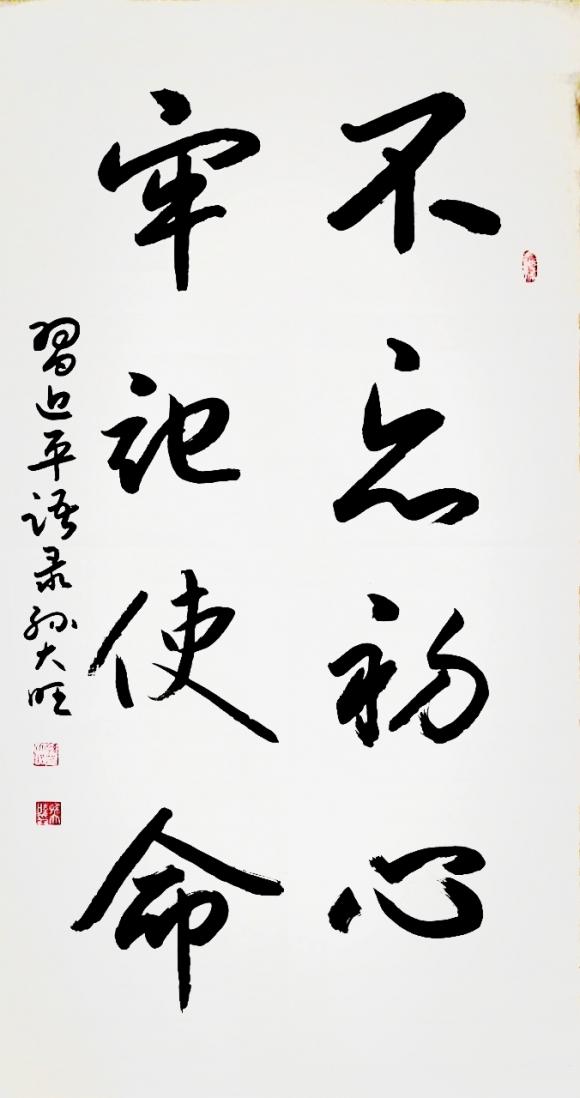 不忘初心
牢记使命
習近平语录孙大旺